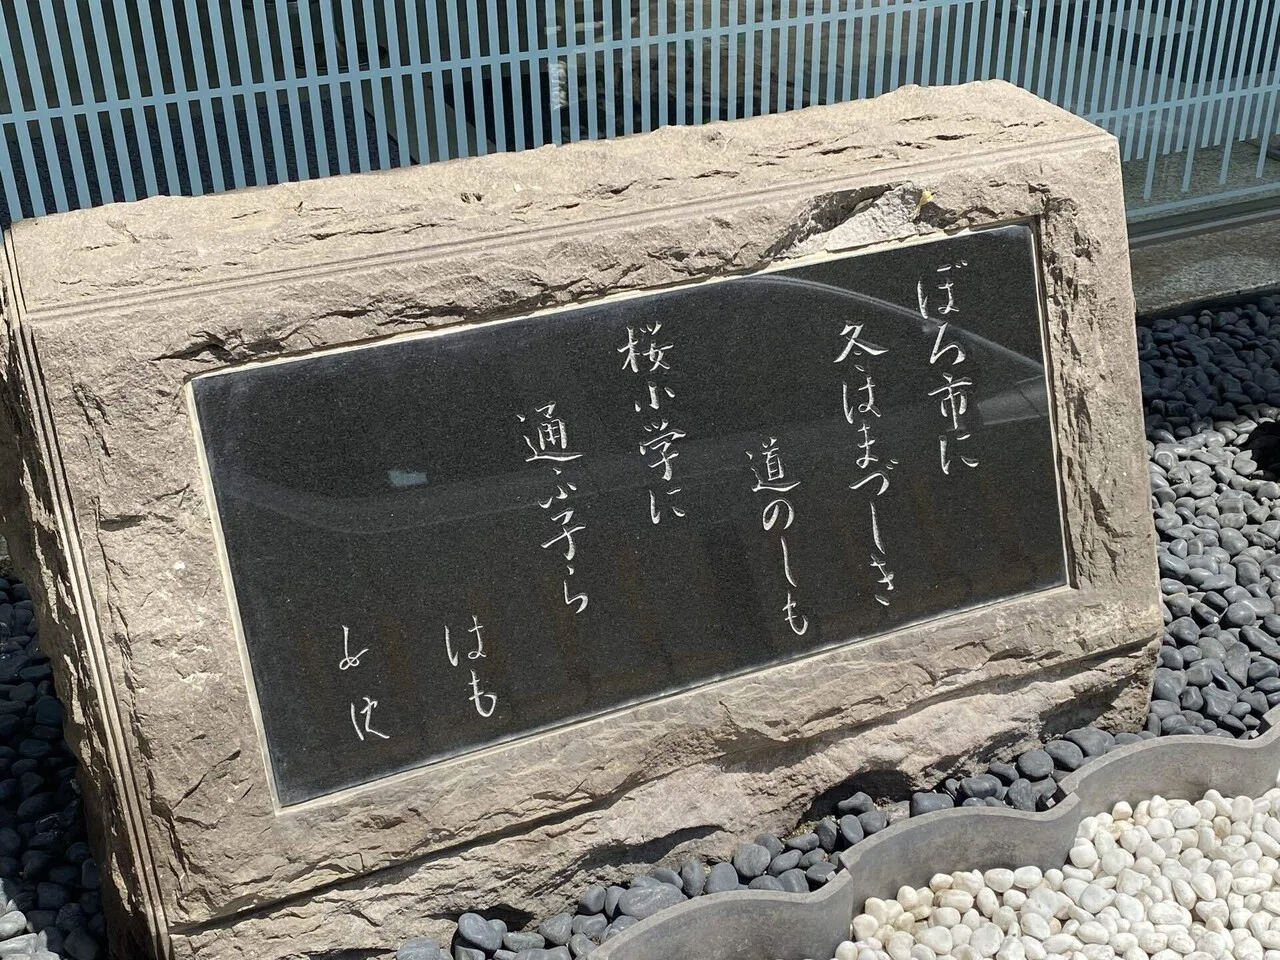 ぼろ市に
冬はまづしき
道のしも
桜小学に
通ふ子ら
はも